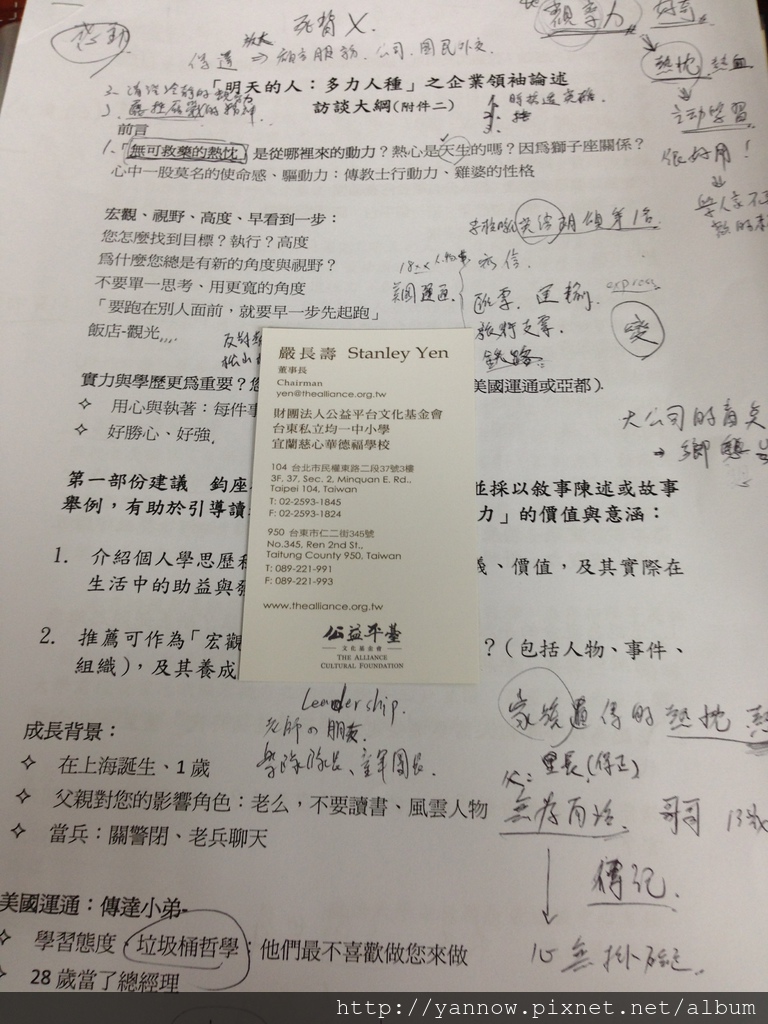 感動
死背 X.
觀察力
熱忱 熱血
「明天的人：多力人種」之企業領袖論述
訪談大綱(附件二)
主動學習
很好用！
前言
1.「無可救藥的熱忱」是從哪裡來的動力？熱心是天生的嗎？因為獅子座關係？
心中一股莫名的使命感、驅動力：傳教士行動力、雞婆的性格
宏觀、視野、高度、早看到一步：
您怎麼找到目標？執行？高度
為什麼您總是有新的角度與視野？
不要單一思考、用更寬的角度
「要跑在別人面前，就要早一步先起跑」
飯店-觀光,,,,
美國運通
匯票. 運輸.
旅行支票.
鐵路
express
變
實力與學歷更為重要？
美國運通或亞都).
用心與執著：每件
好勝心、好強
大公司的
→ 鄉鎮
第一部份建議 鈞座
並採以敘事陳述或故事
舉例，有助於引導讀
力」的價值與意涵：
1. 介紹個人學思歷
義、價值，及其實際在
生活中的助益與
2. 推薦可作為「宏觀
？(包括人物、事件、
組織)，及其養成
嚴長壽 Stanley Yen
董事長
Chairman
yen@thealliance.org.tw
財團法人公益平台文化基金會
台東私立均一中小學
宜蘭慈心華德福學校
104 台北市民權東路二段37號3樓
3F, 37, Sec. 2, Minquan E. Rd.,
Taipei 104, Taiwan
T: 02-2593-1845
F: 02-2593-1824
950 台東市仁二街345號
No.345, Ren 2nd St.,
Taitung County 950, Taiwan
T: 089-221-991
F: 089-221-993
www.thealliance.org.tw
公益平臺
文化基金會
THE ALLIANCE
CULTURAL FOUNDATION
Leadership.
老師の朋友
樂隊隊長、童軍團長.
家族遺傳的熱忱
成長背景：
在上海誕生、1 歲
父：里長(保正)
父親對您的影響角色：老么，不要讀書、風雲人物
當兵：關警閉、老兵聊天
哥哥
傳記.
美國運通：傳達小弟-
學習態度，垃圾桶哲學：他們最不喜歡做您來做
心無掛礙.
28 歲當了總經理
http://yannow.pixnet.net/album